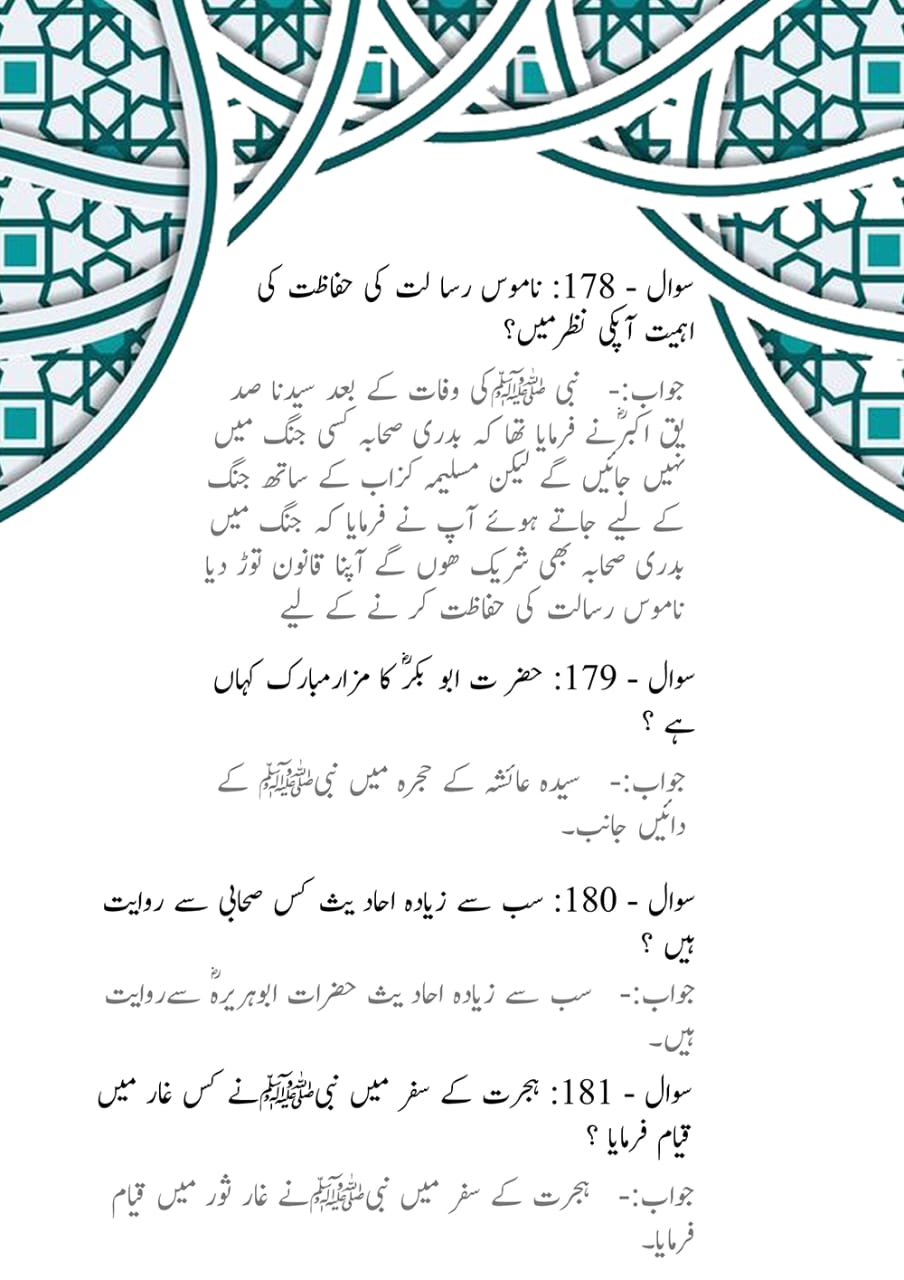 سوال - 178: ناموس رسا لت کی حفاظت کی
اہمیت آپکی نظرمیں؟
جواب:- نبی ﷺکی وفات کے بعد سیدنا صد
یق اکبرؓنے فرمایا تھا کہ بدری صحابہ کسی جنگ میں
نہیں جائیں گے لیکن مسلیمہ کزاب کے ساتھ جنگ
کے لیے جاتے ہوئے آپ نے فرمایا کہ جنگ میں
بدری صحابہ بھی شریک ھوں گے آپنا قانون توڑ دیا
ناموس رسالت کی حفاظت کر نے کے لیے
سوال - 179: حضر ت ابو بکرؓ کا مزارمبارک کہاں
ہے ؟
جواب:- سیدہ عائشہ کے حجرہ میں نبیﷺ کے
دائیں جانب۔
سوال - 180: سب سے زیادہ احاد یث کس صحابی سے روایت
ہیں ؟
جواب:- سب سے زیادہ احاد یث حضرات ابوہریرہؓ سےروایت
ہیں۔
سوال - 181: ہجرت کے سفر میں نبیﷺنے کس غار میں
قیام فرمایا ؟
جواب:- ہجرت کے سفر میں نبیﷺنے غار ثور میں قیام
فرمایا۔